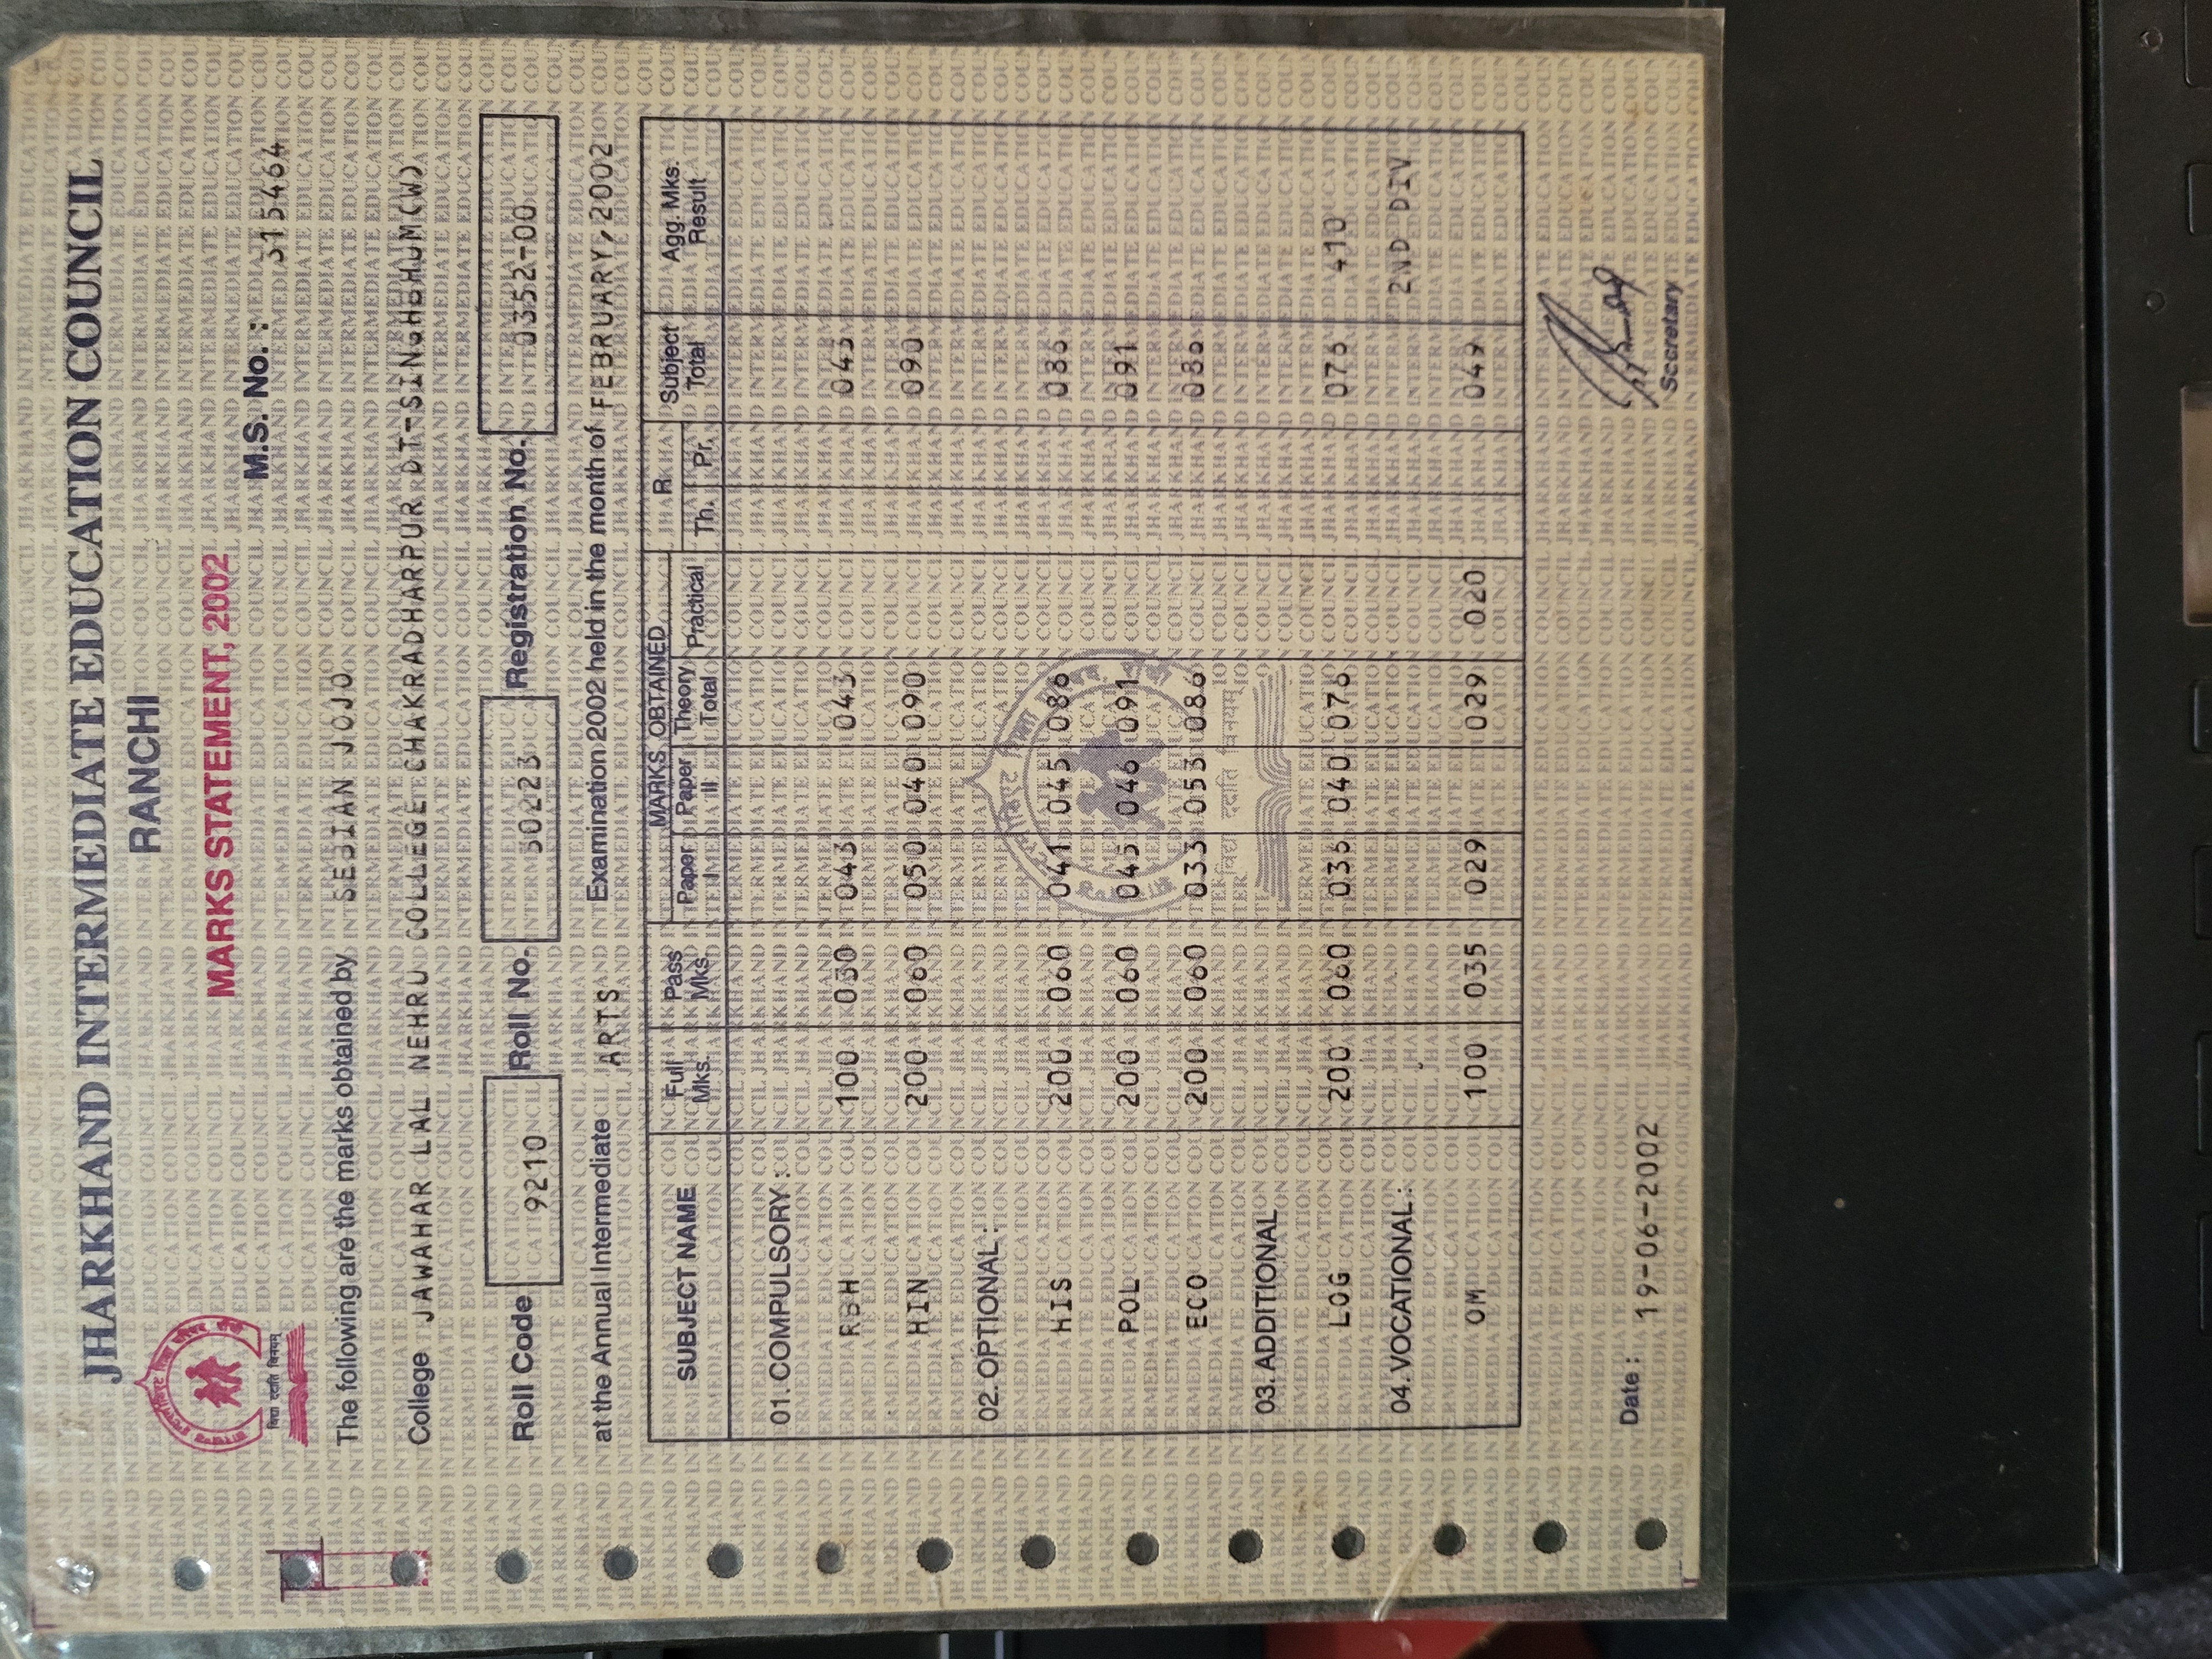 JHARKHAND INTERMEDIATE EDUCATION COUNCIL
RANCHI
MARKS STATEMENT, 2002
विद्या ददाति विनयम्
M.S. No. : 315464
The following are the marks obtained by SEJIAN JOJO
College JAWAHAR LAL NEHRU COLLEGE CHAKRADHARPUR DT-SINGHBHUM(W)
Roll Code 9210 Roll No. 30223 Registration No. 03352-00
at the Annual Intermediate ARTS Examination 2002 held in the month of FEBRUARY,2002
SUBJECT NAME Full Mks. Pass Mks. MARKS OBTAINED R. Subject Total Agg. Mks. Result
Paper I Paper II Theory Total Practical Th. Pr.
01. COMPULSORY :
RBH 100 030 043 043 043
HIN 200 060 050 040 090 090
02. OPTIONAL :
HIS 200 060 041 045 086 086
POL 200 060 045 046 091 091
ECO 200 060 033 053 086 086
03. ADDITIONAL
LOG 200 060 036 040 076 076 410
04. VOCATIONAL : 2ND DIV
OM 100 035 029 029 020 049
विद्या ददाति विनयम्
Date : 19-06-2002
Secretary